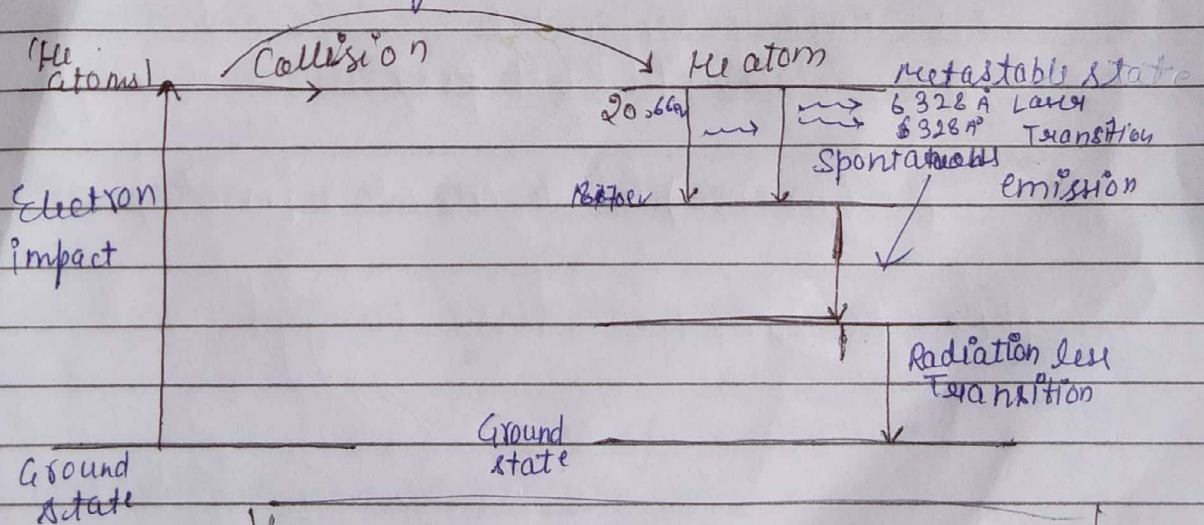 (He
atoms)
Collision
He atom
Metastable state
20.66e
6328 Å Laser
6328 A° Transition
Spontaneous
emission
Electron
impact
Radiation less
Transition
Ground
state
Ground
state